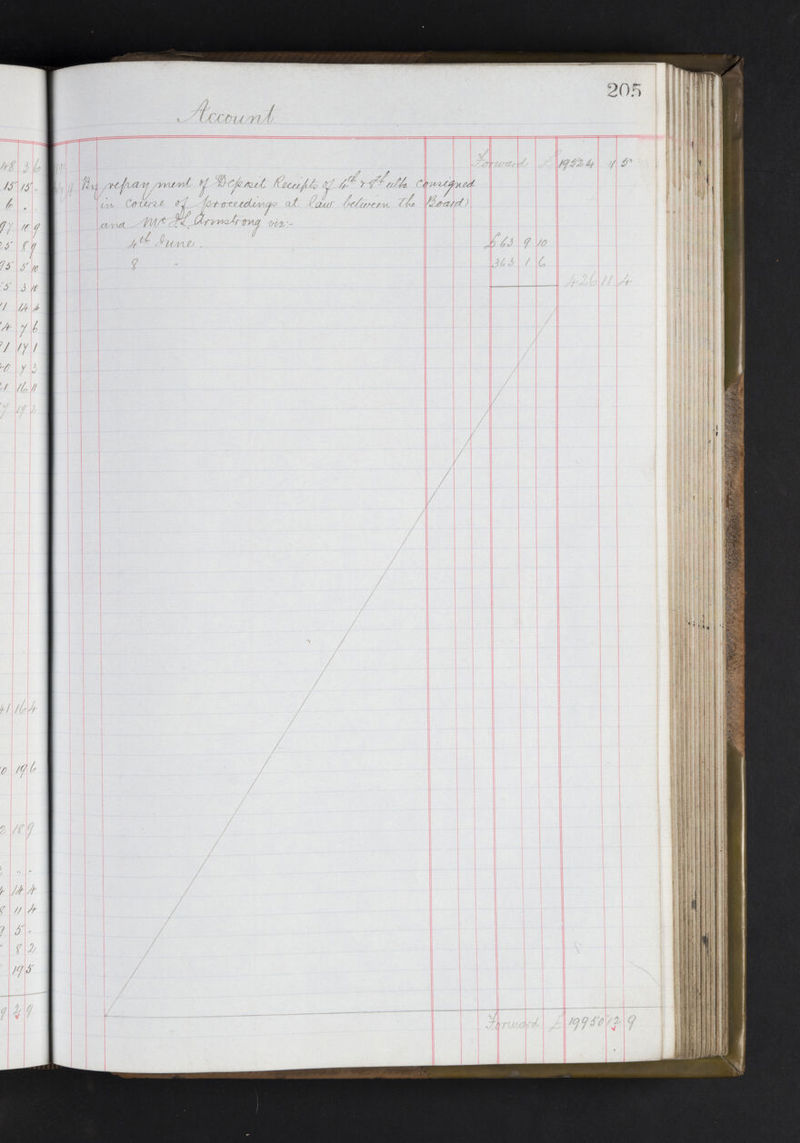 205
Account
Forward £ 19524 1 5
By repayment of Deposit Receipts of 4th & 8th ulto consigned
in course of proceedings at law between the Board
and Mr Armstrong viz:-
4th June. £ 63 9 10
8 " 363 1 6
426 11 4
Forward £ 19950 12 9
48 3 6
15 15 -
6 -
97 10 9
25 8 9
95 5 10
5 3 10
1 14 4
4 7 6
1 17 1
0 7 3
1 16 11
7 19 2
1 16 4
0 19 6
2 18 9
" "
4 14 4
8 11 4
9 5 -
8 2
19 5
9 2 9